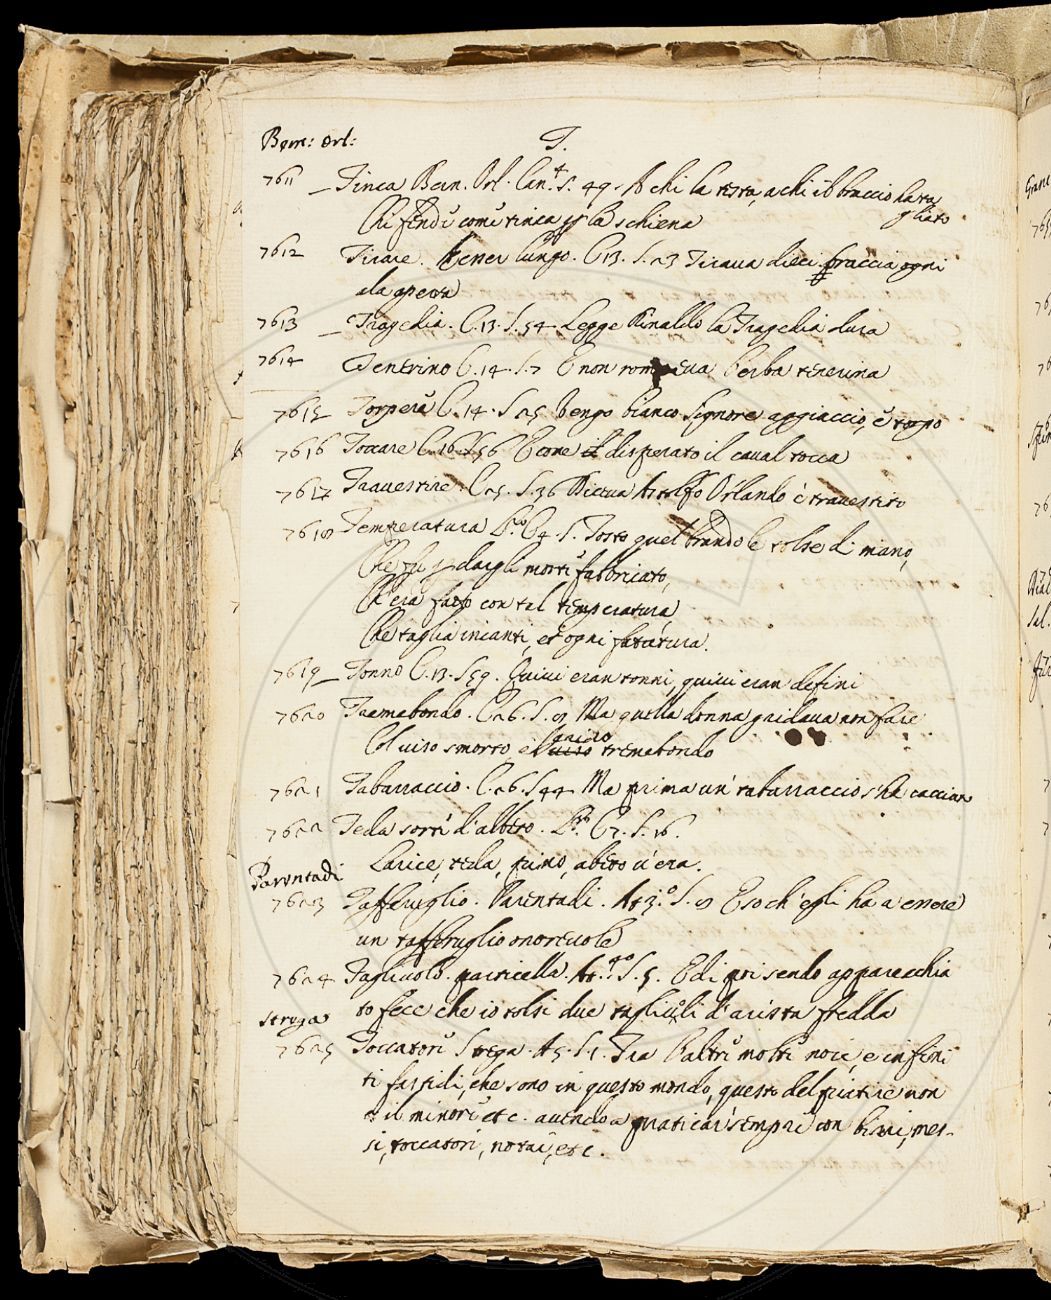 Bern: Orl:
T.
7611 _ Tinca Bern. Orl. Can. 4 S. 49. A chi la testa, a chi il braccio ha ta
gliato
Chi fende come tinca per la schiena
7612 Tirare. tener lungo. C. 13. S. 23 Tiraua dieci braccia ogni
ala aperta
7613 _ Tragedia. C. 13. S. 54. Legge Rinaldo la Tragedia dura
7614 Tenerino C. 14. S. 7 E non rompeua l'erba tenerina
7615 Torpere C. 14. S. 25 Vengo bianco Signore agghiaccio, e torpo
7616 Toccare C. 16. S. 56 E come disperato il caual tocca
7617 Trauestire. C. 25. S. 36 Diceua Astolfo Orlando è trauestito
7618 Temperatura C. 4. S. Tosto quel brando le tolse di mano,
Che fu per dargli morte fabbricato,
Ch'era fatto con tal temperatura,
Che taglia incanti, et ogni fatatura.
7619 _ Tonno C. 13. S. 59. Quiui eran tonni, quiui eran delfini
7620 Tremebondo. C. 26. S. 8 Ma quella donna gridaua non fare
Col uiso smorto e grido tremebondo
7621 Tabarraccio. C. 26. S. 44. Ma prima un tabarraccio s'ha cacciato
7622 Teda sorte d'albero. C. 7. S. 16.
Larice, teda, pino, abeto u'era.
Parentadi
7623 Tafferuglio. Parentadi. At. 3.° S. 8 E so ch'egli ha a essere
un tafferuglio onoreuole
7624 Tagliuolo. S. 5. Ed apparecchia
to fece che io tolsi due tagliuoli d'arista fredda
Strega
7625 Toccatore Strega. At. 5. S. 1. Tra l'altre molte noie, e infini
ti fastidi, che sono in questo mondo, questo del piatire non
è il minore etc. auendo a praticar sempre con birri, mes-
si, toccatori, notai, etc.